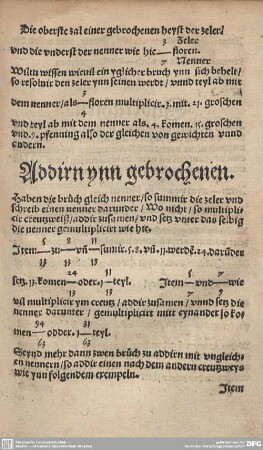 Die oberste zal einer gebrochenen heyst der zeler/
3 Zeler
vnd die vnderst der nenner wie hie — floren.
7 Nenner
Wiltu wissen wieuil ein yglicher bruch ynn sich behelt/
so resoluir den zeler ynn seinen werdt / vnnd teyl ab mit
3
dem nenner/als — floren multiplicir. 3. mit. 21. groschen
4
vnd teyl ab mit dem nenner als. 4. komen. 15. groschen
vnd. 9. pfenning also der gleichen von gewichten vnnd
andern.
Addirn ynn gebrochenen.
Haben die brüch gleich nenner/so summir die zeler vnd
schreib einen nenner darunder / Wo nicht / so multiplic
cir creutzweiß/addir zusamen/vnd setz vnter das selbig
die nenner gemultiplicirt wie hie.
5 8 11
Item — zu — vñ — sumir. 5. 8. vñ. 11. werdē. 24. darüder
13 13 13
24 11 5 7
setz. 13. komen — oder. 1 — teyl. Item — vnd — wie
13 13 7 9
vil multiplicir ym creutz / addir zusamen / vnnd setz die
nenner darunter / gemultiplicirt mit eynander so kom
94 31
men — odder. 1 — teyl.
63 63
Seynd mehr dann zwen brüch zu addirn mit vngleich
en nennern/so addir einen nach dem andern creutzweys
wie ynn folgendem exempeln.
Item